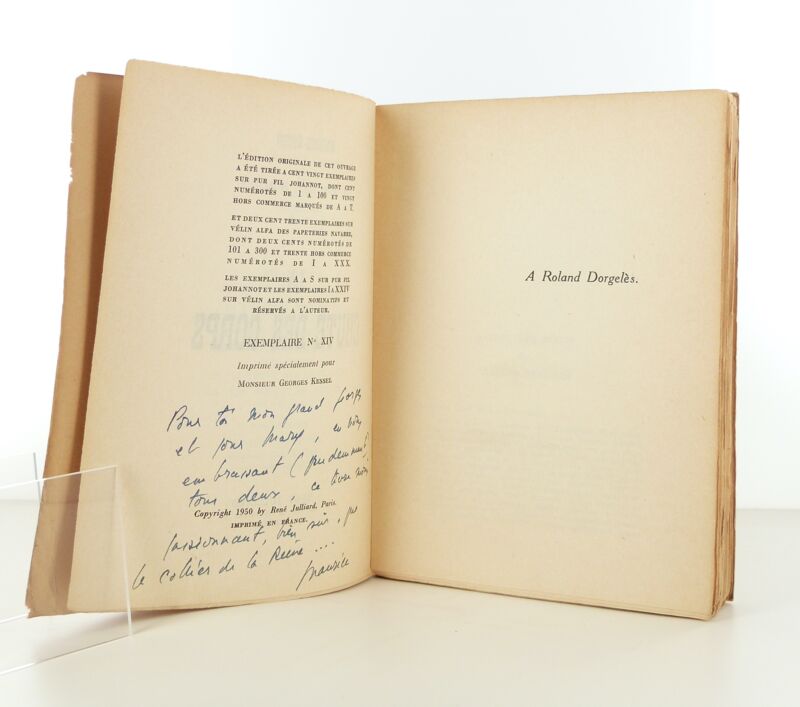 L'ÉDITION ORIGINALE DE CET OUVRAGE
A ÉTÉ TIRÉE A CENT VINGT EXEMPLAIRES
SUR PUR FIL JOHANNOT, DONT CENT
NUMÉROTÉS DE 1 A 100 ET VINGT
HORS COMMERCE MARQUÉS DE A A T.
ET DEUX CENT TRENTE EXEMPLAIRES SUR
VÉLIN ALFA DES PAPETERIES NAVARRE,
DONT DEUX CENTS NUMÉROTÉS DE
101 A 300 ET TRENTE HORS COMMERCE
NUMÉROTÉS DE I A XXX.
LES EXEMPLAIRES A A S SUR PUR FIL
JOHANNOT ET LES EXEMPLAIRES I A XXIV
SUR VÉLIN ALFA SONT NOMINATIFS ET
RÉSERVÉS A L'AUTEUR.
EXEMPLAIRE N° XIV
Imprimé spécialement pour
MONSIEUR GEORGES KESSEL
Pour toi mon grand Georges
et pour Mary, en vous
embrassant (prudemment)
tous deux, ce livre moins
Copyright 1950 by René Julliard, Paris.
IMPRIMÉ EN FRANCE.
passionnant, bien sûr, que
le collier de la Reine ....
Maurice
A Roland Dorgelès.